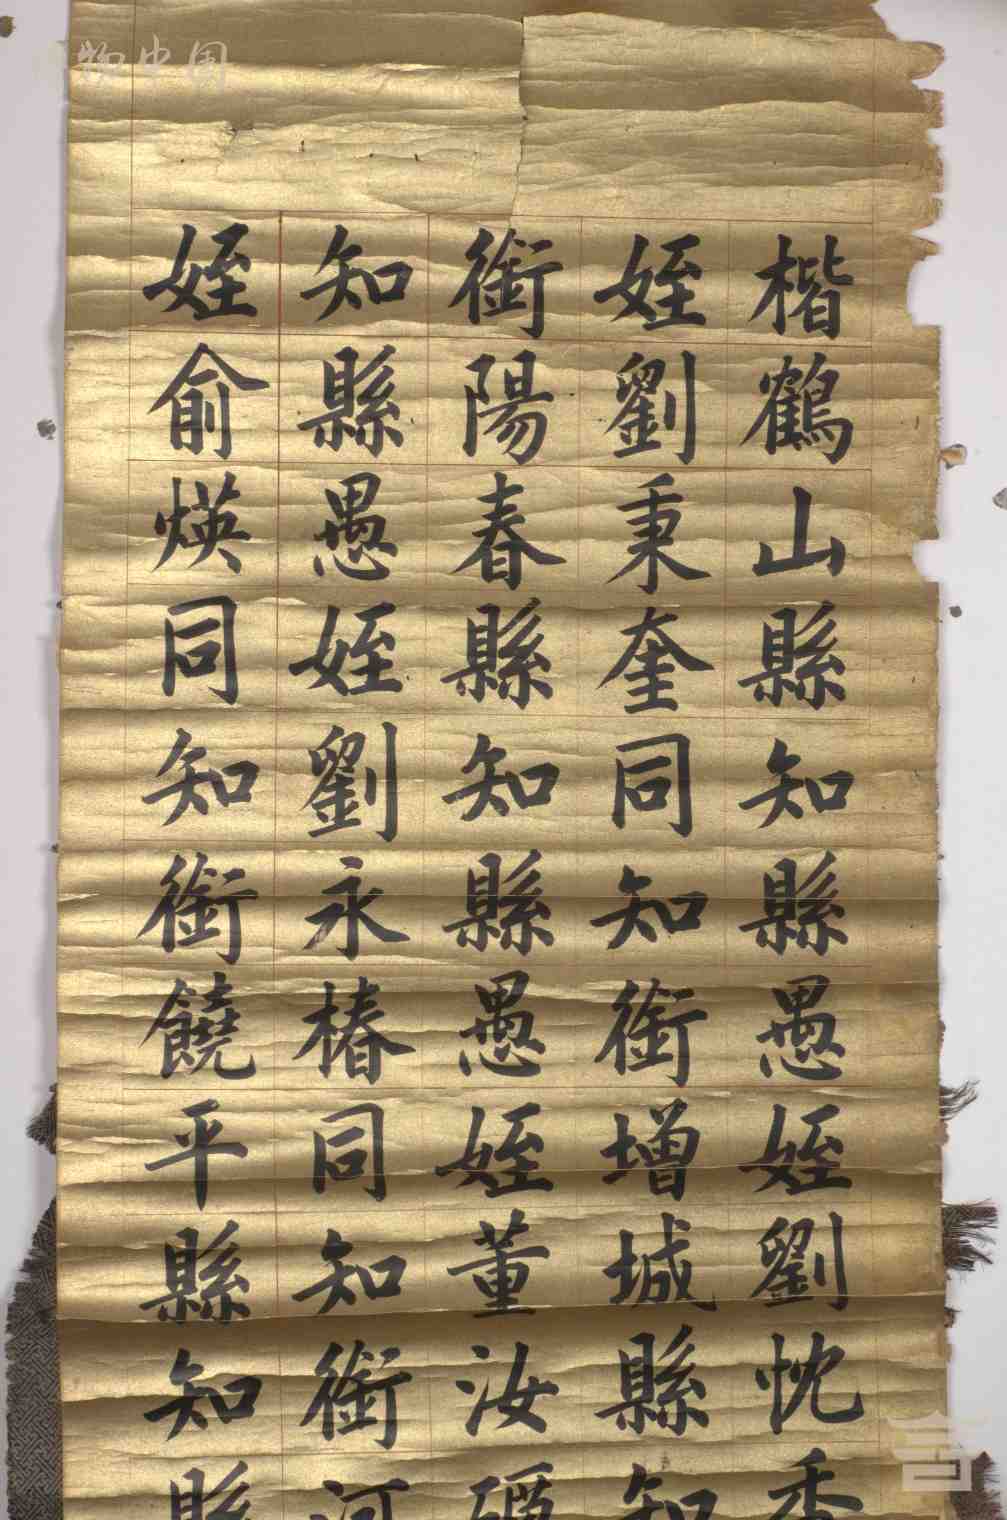 楷鶴山縣知縣愚姪劉忱
姪劉秉奎同知銜增城縣知
銜陽春縣知縣愚姪董汝礪
知縣愚姪劉永椿同知銜河
姪俞煐同知銜饒平縣知縣
中国